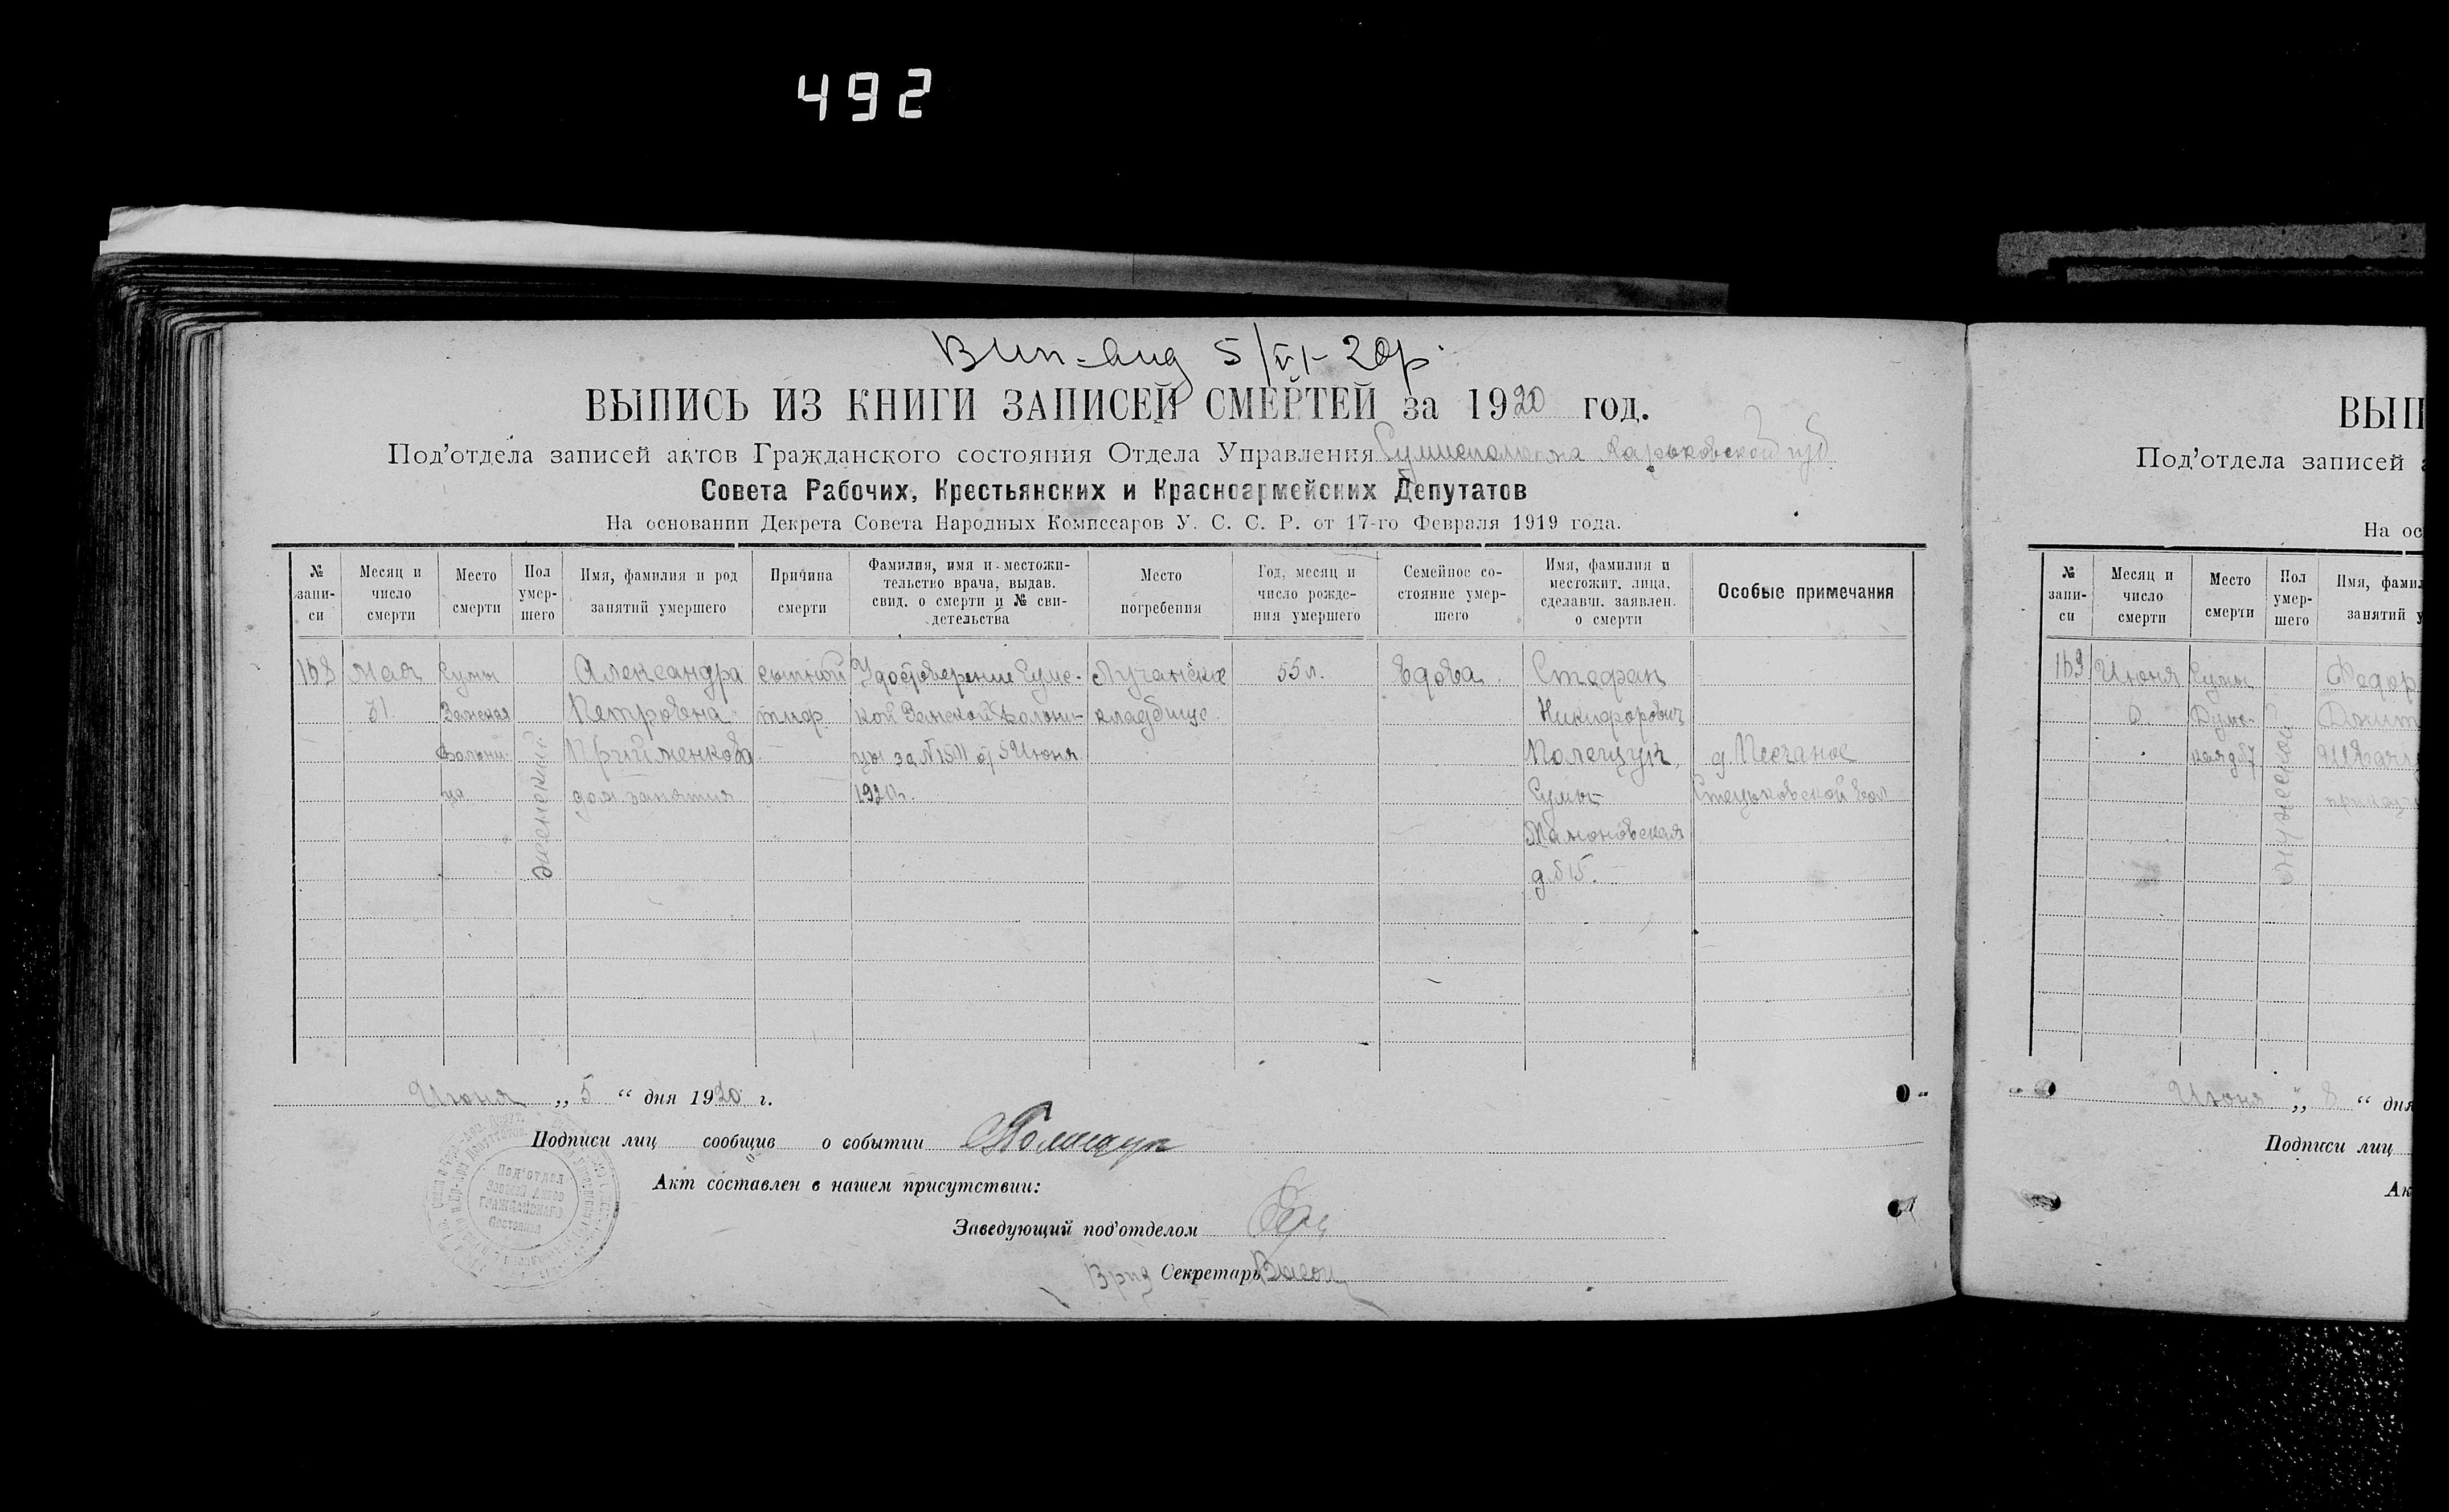 492
5/VI-20р.
ВЫПИСЬ ИЗ КНИГИ ЗАПИСЕЙ СМЕРТЕЙ за 1920 год.
Под'отдела записей актов Гражданского состояния Отдела Управления Харьковской губ
Совета Рабочих, Крестьянских и Красноармейских Депутатов
На основании Декрета Совета Народных Комиссаров У. С. С. Р. от 17-го Февраля 1919 года.
№ запи-си
Месяц и число смерти
Место смерти
Пол умер-шего
Имя, фамилия и род занятий умершего
Причина смерти
Фамилия, имя и местожи-тельство врача, выдав. свид. о смерти и № сви-детельства
Место погребения
Год, месяц и число рожде-ния умершего
Семейное со-стояние умер-шего
Имя, фамилия и местожит. лица, сделавш. заявлен. о смерти
Особые примечания
Мая
31
Сумы
Земская
Больни-
ца
женский
Александра
Петровна
Прийменкова
дом. занятия
сыпной
тиф
Удостоверение Сумс-
кой Земской Больни-
цы за № 1511 от 5 Июня
1920 г.
Лучанское
кладбище
55 л.
Вдова
Стефан
Никифорович
Полещук
Сумы
д. № 15.
д. Песчаное
Стецьковской вол
Июня „ 5 “ дня 1920 г.
Подписи лиц сообщив о событии
Акт составлен в нашем присутствии:
Заведующий под'отделом
Врид Секретарь
Под'отдел
Записей Актов
Гражданского
Состояния
ВЫП
Под'отдела записей
На ос
№ запи-си
Месяц и число смерти
Место смерти
Пол умер-шего
Имя, фами
занятий
Июня
Сумы
мужеской
Федор
Июня „ 8 “ дня
Подписи лиц
Ак